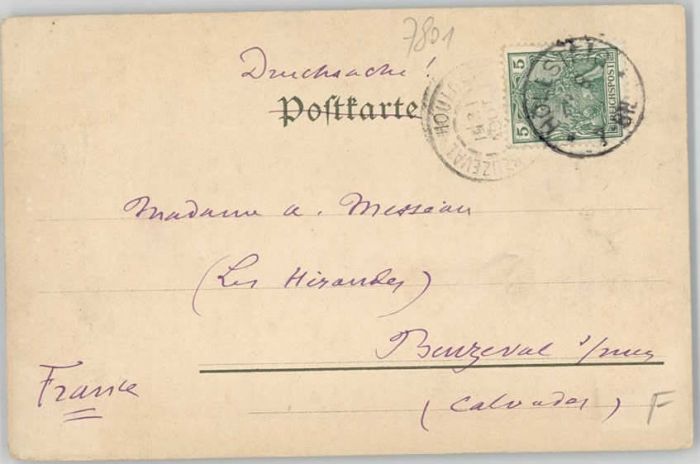 7801
Drucksache!
Postkarte
5 5
REICHSPOST
HÖLLST
HOULG
BEUZEVAL
Madame a. Messeau
(Les Hirondes)
Beuzeval s/mer
France
(Calvados)
F